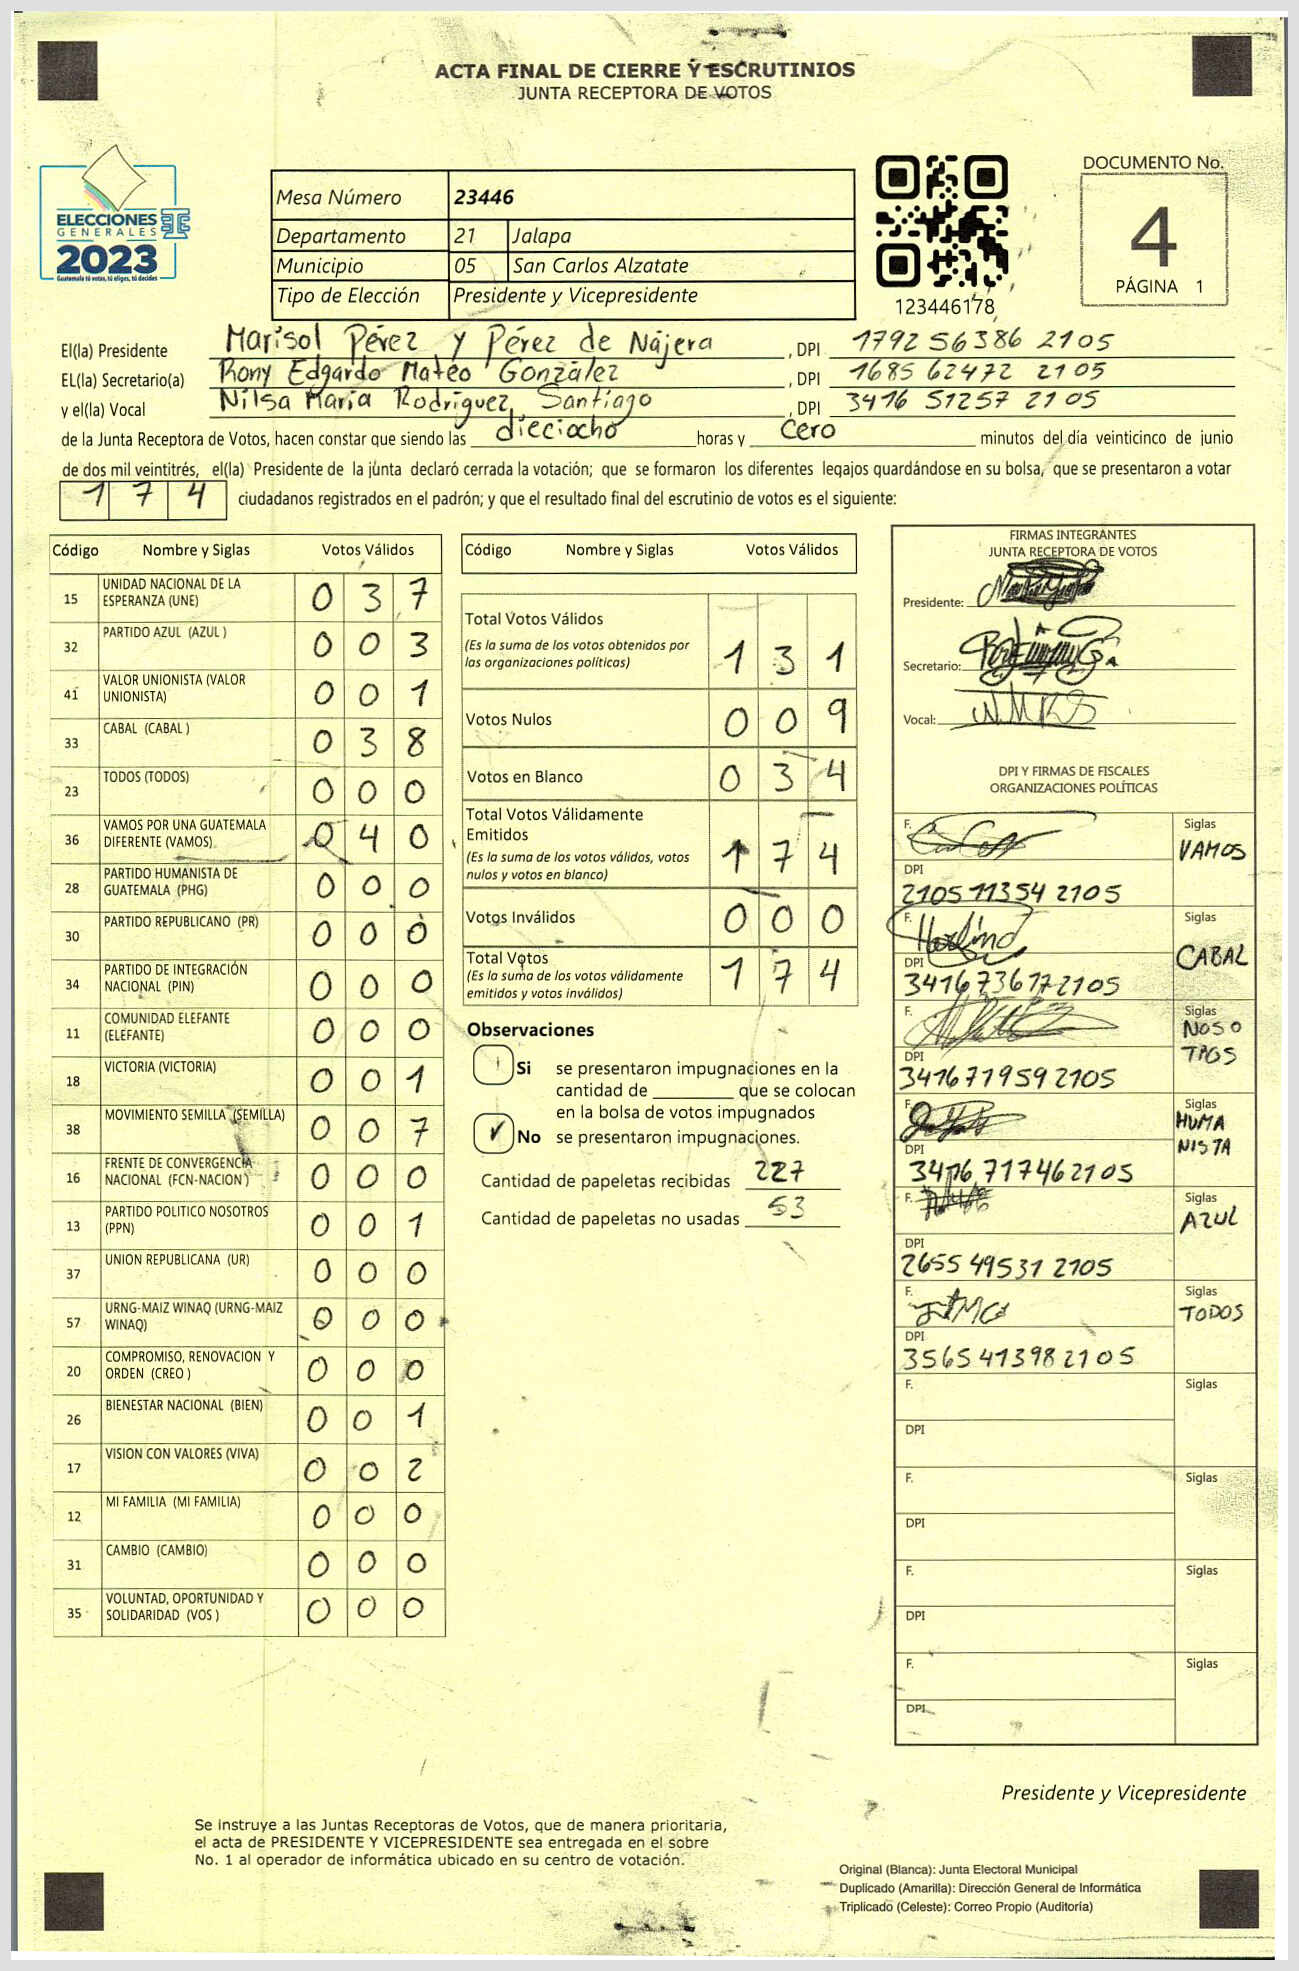 ACTA FINAL DE CIERRE Y ESCRUTINIOS
JUNTA RECEPTORA DE VOTOS
ELECCIONES
GENERALES
2023
Guatemala tú votas, tú eliges, tú decides
Mesa Número 23446
Departamento 21 Jalapa
Municipio 05 San Carlos Alzatate
Tipo de Elección Presidente y Vicepresidente
123446178
DOCUMENTO No.
4
PÁGINA 1
El(la) Presidente Marisol Pérez y Pérez de Nájera, DPI 1792 56386 2105
EL(la) Secretario(a) Rony Edgardo Mateo González, DPI 1685 62472 2105
y el(la) Vocal Nilsa María Rodríguez Santiago, DPI 3416 51257 2105
de la Junta Receptora de Votos, hacen constar que siendo las dieciocho horas y cero minutos del día veinticinco de junio
de dos mil veintitrés, el(la) Presidente de la junta declaró cerrada la votación; que se formaron los diferentes legajos quardándose en su bolsa, que se presentaron a votar
174 ciudadanos registrados en el padrón; y que el resultado final del escrutinio de votos es el siguiente:
Código Nombre y Siglas Votos Válidos
15 UNIDAD NACIONAL DE LA ESPERANZA (UNE) 037
32 PARTIDO AZUL (AZUL ) 003
41 VALOR UNIONISTA (VALOR UNIONISTA) 001
33 CABAL (CABAL ) 038
23 TODOS (TODOS) 000
36 VAMOS POR UNA GUATEMALA DIFERENTE (VAMOS) 040
28 PARTIDO HUMANISTA DE GUATEMALA (PHG) 000
30 PARTIDO REPUBLICANO (PR) 000
34 PARTIDO DE INTEGRACIÓN NACIONAL (PIN) 000
11 COMUNIDAD ELEFANTE (ELEFANTE) 000
18 VICTORIA (VICTORIA) 001
38 MOVIMIENTO SEMILLA (SEMILLA) 007
16 FRENTE DE CONVERGENCIA NACIONAL (FCN-NACION ) 000
13 PARTIDO POLITICO NOSOTROS (PPN) 001
37 UNION REPUBLICANA (UR) 000
57 URNG-MAIZ WINAQ (URNG-MAIZ WINAQ) 000
20 COMPROMISO, RENOVACION Y ORDEN (CREO ) 000
26 BIENESTAR NACIONAL (BIEN) 001
17 VISION CON VALORES (VIVA) 002
12 MI FAMILIA (MI FAMILIA) 000
31 CAMBIO (CAMBIO) 000
35 VOLUNTAD, OPORTUNIDAD Y SOLIDARIDAD (VOS ) 000
Código Nombre y Siglas Votos Válidos
Total Votos Válidos 131
(Es la suma de los votos obtenidos por
las organizaciones políticas)
Votos Nulos 009
Votos en Blanco 034
Total Votos Válidamente
Emitidos 174
(Es la suma de los votos válidos, votos
nulos y votos en blanco)
Votos Inválidos 000
Total Votos 174
(Es la suma de los votos válidamente
emitidos y votos inválidos)
Observaciones
Si se presentaron impugnaciones en la
cantidad de ________ que se colocan
en la bolsa de votos impugnados
✓ No se presentaron impugnaciones.
Cantidad de papeletas recibidas 227
Cantidad de papeletas no usadas 53
FIRMAS INTEGRANTES
JUNTA RECEPTORA DE VOTOS
Presidente:
Secretario:
Vocal:
DPI Y FIRMAS DE FISCALES
ORGANIZACIONES POLÍTICAS
F. Siglas VAMOS
DPI 2105 11354 2105
F. Siglas CABAL
DPI 3416 73617 2105
F. Siglas NOSOTROS
DPI 3416 71959 2105
F. Siglas HUMANISTA
DPI 3416 71746 2105
F. Siglas AZUL
DPI 2655 49531 2105
F. Siglas TODOS
DPI 3565 41398 2105
F. Siglas
DPI
F. Siglas
DPI
F. Siglas
DPI
F. Siglas
DPI
Presidente y Vicepresidente
Se instruye a las Juntas Receptoras de Votos, que de manera prioritaria,
el acta de PRESIDENTE Y VICEPRESIDENTE sea entregada en el sobre
No. 1 al operador de informática ubicado en su centro de votación.
Original (Blanca): Junta Electoral Municipal
Duplicado (Amarilla): Dirección General de Informática
Triplicado (Celeste): Correo Propio (Auditoría)